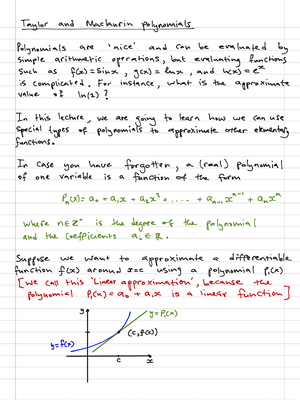 Taylor and Maclaurin polynomials
Polynomials are 'nice' and can be evaluated by
simple arithmetic operations, but evaluating functions
such as f(x)=sinx, g(x)=lnx, and h(x)=eˣ
is complicated. For instance, what is the approximate
value of ln(2)?
In this lecture, we are going to learn how we can use
special types of polynomials to approximate other elementary
functions.
In case you have forgotten, a (real) polynomial
of one variable is a function of the form
Pₙ(x) = a₀ + a₁x + a₂x² + .... + aₙ₋₁xⁿ⁻¹ + aₙxⁿ
where n∈Z⁺ is the degree of the polynomial
and the coefficients aᵢ ∈ ℝ.
Suppose we want to approximate a differentiable
function f(x) around x=c using a polynomial P₁(x)
[We call this 'Linear approximation', because the
polynomial P₁(x) = a₀ + a₁x is a linear function]
y
y=P₁(x)
(c, f(c))
y=f(x)
c
x